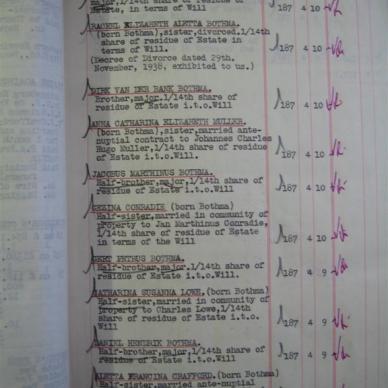 major,1/14th share of residue of
Estate, in terms of Will 187 4 10
RACHEL ELIZABETH ALETTA BOTHMA.
(born Bothma),sister,divorced,1/14th
share of residue of Estate in
terms of Will. 187 4 10
(Decree of Divorce dated 29th.
November, 1938, exhibited to us.)
DIRK VAN DER BANK BOTHMA.
Brother,major,1/14th share of
residue of Estate i.t.o.Will 187 4 10
ANNA CATHARINA ELIZABETH MULLER.
(born Bothma),sister,married ante-
nuptial contract to Johannes Charles
Hugo Muller,1/14th share of residue
of Estate i.t.o.Will. 187 4 10
JACOBUS MARTHINUS BOTHMA.
Half-brother,major,1/14th share of
residue of Estate i.t.o.Will. 187 4 10
GEZINA CONRADIE (born Bothma)
Half-sister,married in community of
property to Jan Marthinus Conradie,
1/14th share of residue of Estate
in terms of the Will 187 4 10
GERT PETRUS BOTHMA.
Half-brother,major,1/14th share of
residue of Estate i.t.o.Will. 187 4 9
CATHARINA SUSANNA LOWE,(born Bothma)
Half-sister,married in community of
property to Charles Lowe,1/14th
share of residue of Estate i.t.o.
Will 187 4 9
DANIEL HENDRIK BOTHMA.
Half-brother,major,1/14th share of
residue of Estate i.t.o.Will. 187 4 9
ALETTA FRANCINA CRAFFORD.(born Bothma)
Half-sister,married ante-nuptial